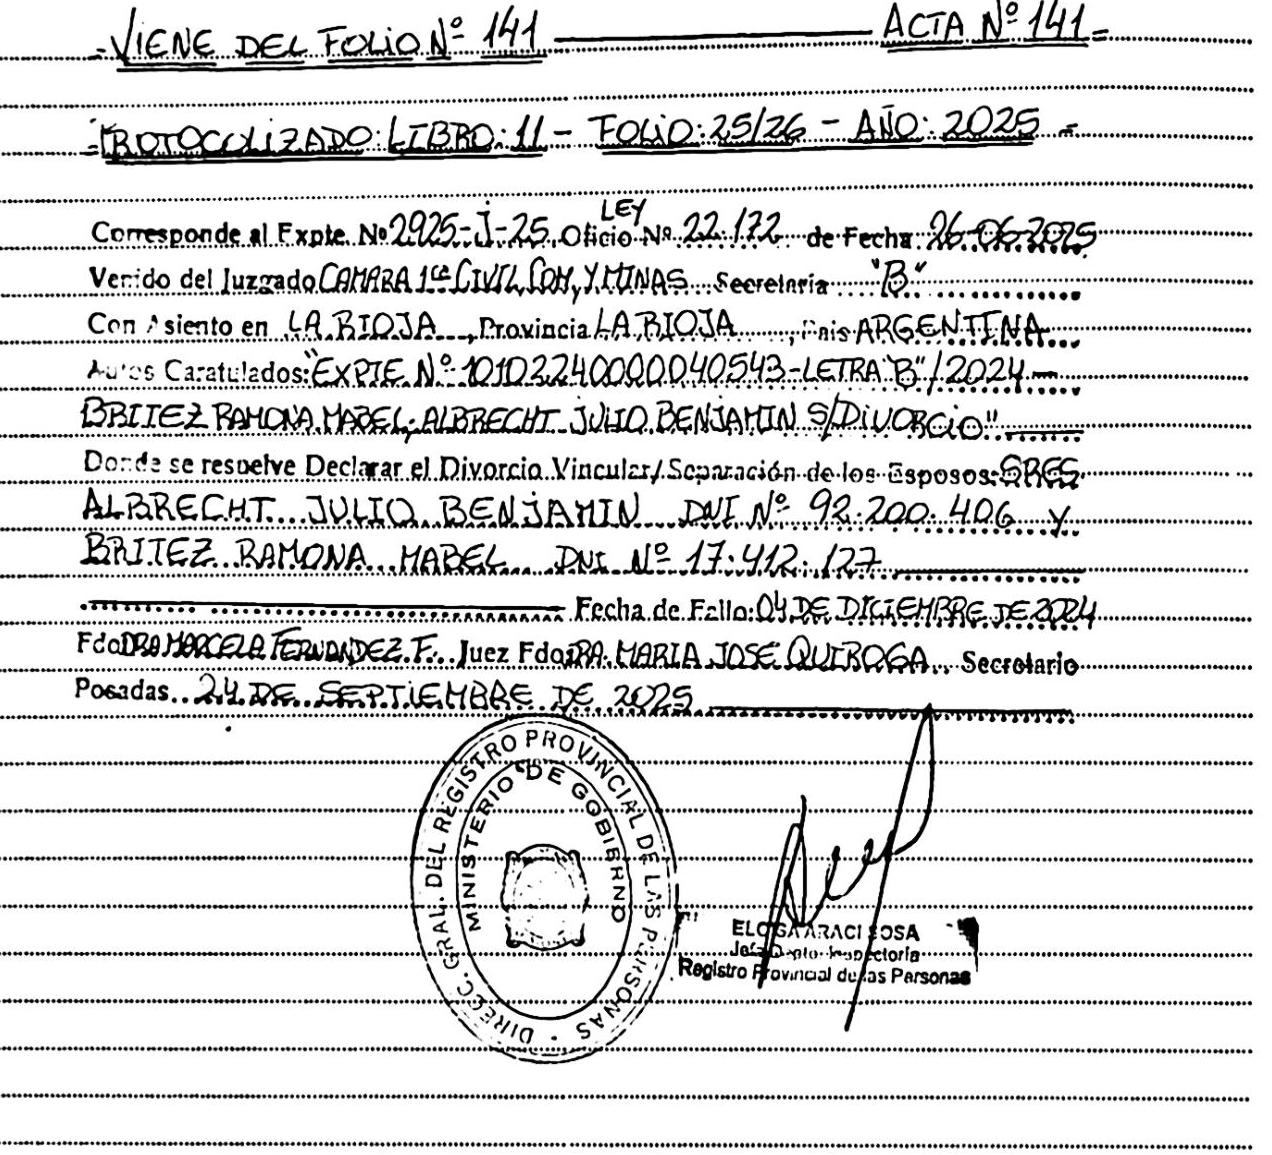 =VIENE DEL FOLIO Nº 141 ACTA Nº 141=
=PROTOCOLIZADO: LIBRO: 11 - FOLIO: 25/26 - AÑO: 2025 =
LEY
Corresponde al Expte. Nº 2925-J-25 Oficio Nº 22.172 de Fecha 26-06-2025
Venido del Juzgado CAMARA 1ra CIVIL, COM, Y MINAS Secretaría "B"
Con Asiento en LA RIOJA, Provincia LA RIOJA, País ARGENTINA
Autos Caratulados: "EXPTE Nº 10102240000040543-LETRA "B"/2024-
BRITEZ RAMONA MABEL; ALBRECHT JULIO BENJAMIN S/DIVORCIO"
Donde se resuelve Declarar el Divorcio Vincular/Separación de los Esposos: SRES
ALBRECHT JULIO BENJAMIN DNI Nº 92.200.406 y
BRITEZ RAMONA MABEL DNI Nº 17.412.127
Fecha de Fallo: 04 DE DICIEMBRE DE 2024
Fdo DRA MARCELA FERNANDEZ F. Juez Fdo DRA. MARIA JOSE QUIROGA Secretario
Posadas 24 DE SEPTIEMBRE DE 2025
DIRECC. GRAL. DEL REGISTRO PROVINCIAL DE LAS PERSONAS
MINISTERIO DE GOBIERNO
SOSA
Jefa Dpto. Inspectoría
Registro Provincial de las Personas